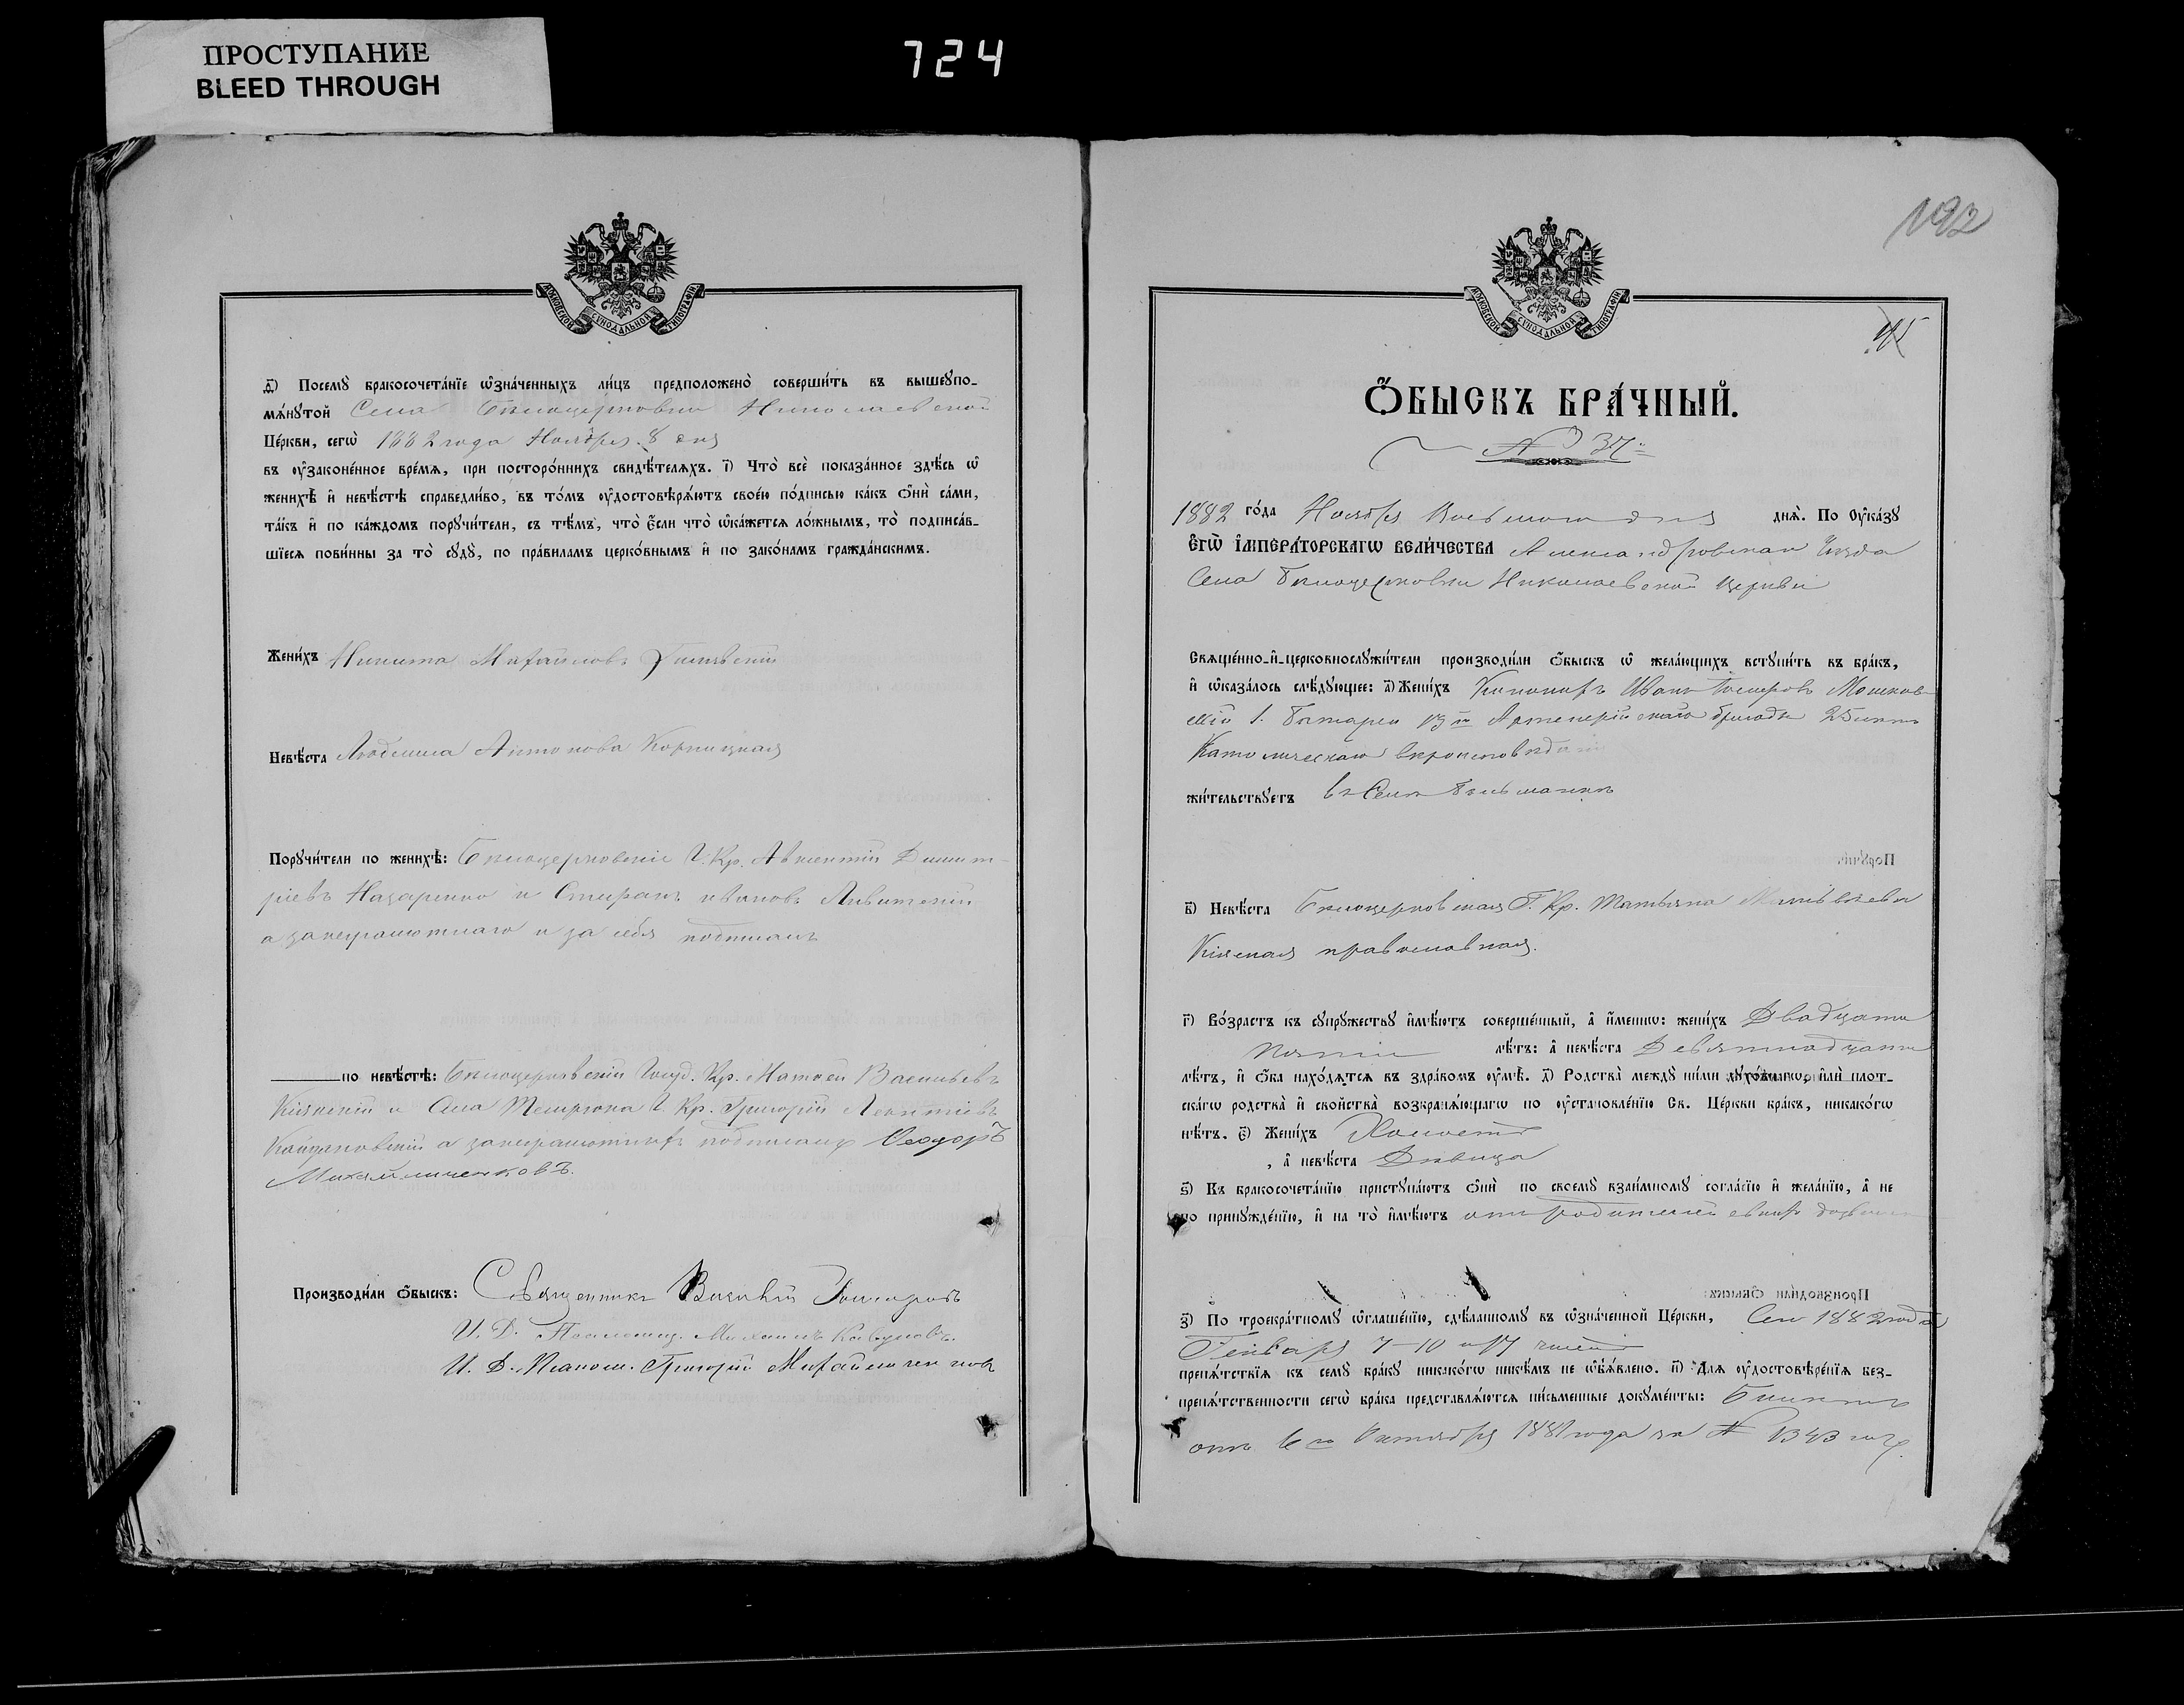 ПРОСТУПАНИЕ
BLEED THROUGH
724
МОСКОВСКОЙ СУНОДАЛЬНОЙ ТИПОГРАФІИ
Посемꙋ̀ бракосочета́нїе ѡ҆зна́ченныхъ ли́цъ предположено̀ соверши́ть въ вышеꙋпо-
мѧ́нꙋтой Села Белоцерковки Николаевской
Це́ркви, сегѡ̀ 1882 года Ноября 8 дня
въ ᲂу҆законе́нное вре́мѧ, при посторо́ннихъ свидѣ́телѧхъ. і҃) Что̀ всѐ пока́занное здѣ́сь ѡ҆
женихѣ̀ и҆ невѣ́стѣ справедли́во, въ то́мъ ᲂу҆достовѣрѧ́ютъ свое́ю по́дписью ка́къ ѻ҆нѝ са́ми,
та́къ и҆ по ка́ждомъ порꙋчи́тели, съ тѣ́мъ, что̀ є҆́сли что̀ ѡ҆ка́жетсѧ ло́жнымъ, то̀ подписа́в-
шїесѧ пови́нны за то̀ сꙋдꙋ̀, по пра́виламъ церко́внымъ и҆ по зако́намъ гражда́нскимъ.
Жени́хъ Никита Михайловъ
Невѣ́ста Людмила Антонова Корницкая
Порꙋчи́тели по женихѣ̀: Белоцерковскіе Г. Кр. Авксентій Димит-
ріевъ Назаренко и Стефанъ Ивановъ
а за неграмотнаго и за себя подписалъ
по невѣ́стѣ: Белоцерковскій Госуд. Кр. Матѳей Васильевъ
Кіянскій и Села Темрюка Г. Кр. Григорій Леонтіевъ
а за неграмотныхъ подписалъ Ѳеодоръ
Михайличенковъ.
Производи́ли ѻ҆́быскъ: Священникъ Василій
И. Д. Псаломщ. Михаилъ
И. Д. Псалом. Григорій Михайличенковъ
192
45
Ѻ҆́БЫСКЪ БРА́ЧНЫЙ.
№ 37
1882 го́да Ноября Восьмого дня днѧ̀. По Оу҆ка́зꙋ
Є҆ГѠ̀ И҆МПЕРА́ТОРСКАГѠ ВЕЛИ́ЧЕСТВА Александровскаго Уѣзда
Села Белоцерковки Николаевской Церкви
Свѧще́нно-и҆-церковнослꙋжи́тели производи́ли ѻ҆́быскъ ѡ҆ жела́ющихъ встꙋпи́ть въ бра́къ,
и҆ ѡ҆каза́лось слѣ́дꙋющее: а҃) Жени́хъ Канониръ Иванъ
1. Батареи 13й Артилерійской бригады 25 лѣтъ
Католическаго вѣроисповѣданія
жи́тельствꙋетъ въ Селѣ
в҃) Невѣ́ста Белоцерковская Г. Кр. Татьяна Матвѣева
Кіянская православная.
г҃) Во́зрастъ къ сꙋпрꙋ́жествꙋ и҆мѣ́ютъ соверше́нный, а҆ и҆́менно: жени́хъ Двадцати
пяти лѣ́тъ: а҆ невѣ́ста Девятнадцати
лѣ́тъ, и҆ ѻ҆́ба нахо́дѧтсѧ въ здра́вомъ ᲂу҆мѣ̀. д҃) Родства̀ междꙋ̀ ни́ми дꙋхо́внагѡ, и҆лѝ пло́т-
скагѡ родства̀ и҆ сво́йства возбранѧ́ющагѡ по ᲂу҆становле́нїю Св. Це́ркви бра́къ, никако́гѡ
нѣ́тъ. є҃) Жени́хъ Холостъ
, а҆ невѣ́ста Дѣвица
ѕ҃) Къ бракосочета́нїю пристꙋпа́ютъ ѻ҆нѝ по своемꙋ̀ взаи́мномꙋ согла́сїю и҆ жела́нїю, а҆ не
по принꙋжде́нїю, и҆ на то̀ и҆мѣ́ютъ отъ родителей своихъ
з҃) По троекра́тномꙋ ѡ҆глаше́нїю, сдѣ́ланномꙋ въ ѡ҆зна́ченной Це́ркви, Сего 1882 года
Генваря 7-10 и 17 чиселъ
препѧ́тствїѧ къ семꙋ̀ бра́кꙋ никако́гѡ никѣ́мъ не ѡ҆б̾ѧ́влено. и҃) Длѧ ᲂу҆достовѣре́нїѧ без-
препѧ́тственности сегѡ̀ бра́ка представлѧ́ютсѧ пи́сьменные докꙋме́нты: Билетъ
отъ 6го Октября 1881 года за № 1343